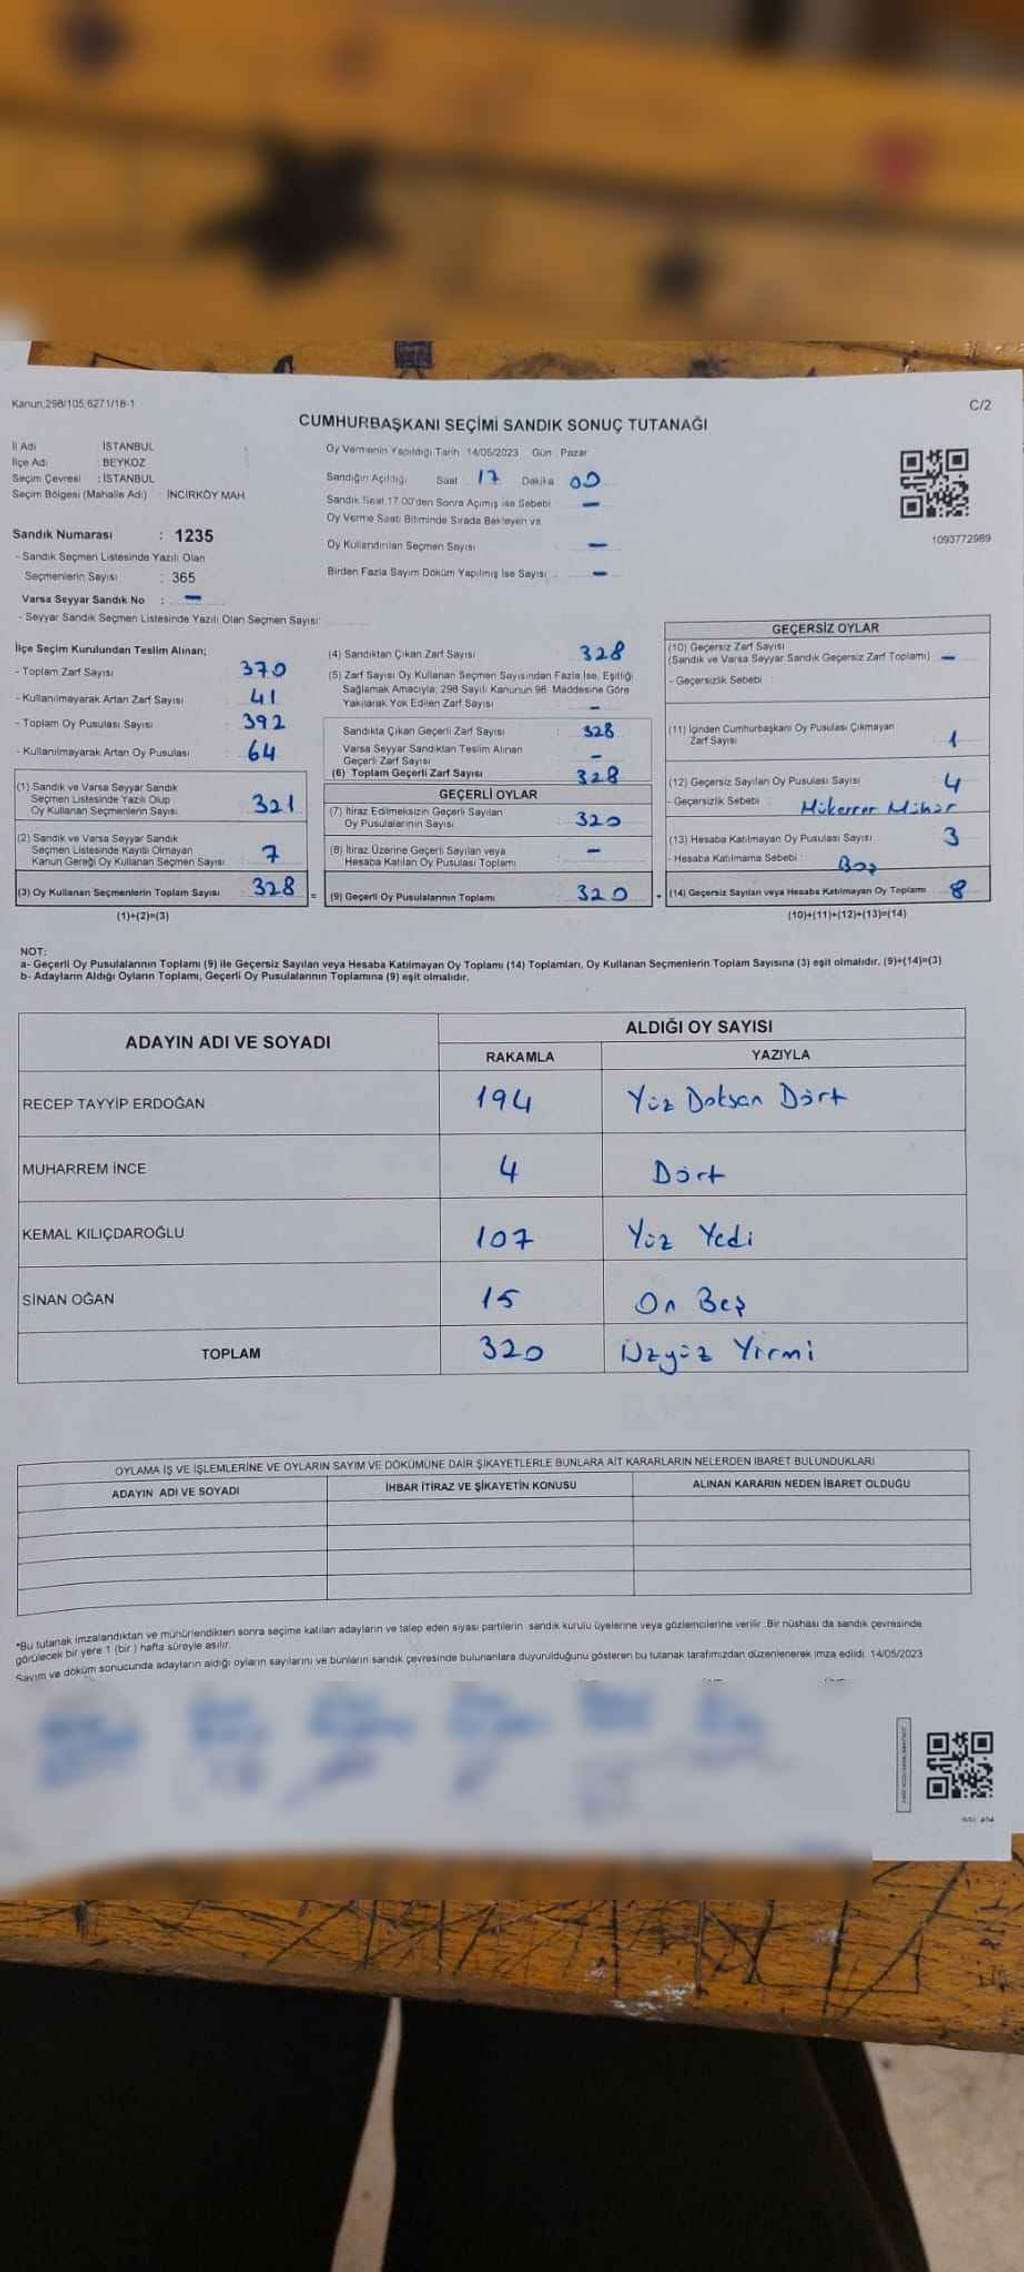 Kanun;298/105,6271/18-1
C/2
CUMHURBAŞKANI SEÇİMİ SANDIK SONUÇ TUTANAĞI
İl Adı İSTANBUL
İlçe Adı BEYKOZ
Seçim Çevresi : İSTANBUL
Seçim Bölgesi (Mahalle Adı) : İNCİRKÖY MAH.
Oy Vermenin Yapıldığı Tarih 14/05/2023 Gün Pazar
Sandığın Açıldığı Saat 17 Dakika 00
Sandık Saat 17.00'den Sonra Açılmış ise Sebebi –
Oy Verme Saati Bitiminde Sırada Bekleyen ve
Oy Kullandırılan Seçmen Sayısı –
Birden Fazla Sayım Döküm Yapılmış İse Sayısı : –
1093772989
Sandık Numarası : 1235
- Sandık Seçmen Listesinde Yazılı Olan
Seçmenlerin Sayısı : 365
Varsa Seyyar Sandık No : –
- Seyyar Sandık Seçmen Listesinde Yazılı Olan Seçmen Sayısı:
İlçe Seçim Kurulundan Teslim Alınan;
- Toplam Zarf Sayısı : 370
- Kullanılmayarak Artan Zarf Sayısı : 41
- Toplam Oy Pusulası Sayısı : 392
- Kullanılmayarak Artan Oy Pusulası : 64
(1) Sandık ve Varsa Seyyar Sandık
Seçmen Listesinde Yazılı Olup
Oy Kullanan Seçmenlerin Sayısı : 321
(2) Sandık ve Varsa Seyyar Sandık
Seçmen Listesinde Kayıtlı Olmayan
Kanun Gereği Oy Kullanan Seçmen Sayısı : 7
(3) Oy Kullanan Seçmenlerin Toplam Sayısı : 328
(1)+(2)=(3)
(4) Sandıktan Çıkan Zarf Sayısı : 328
(5) Zarf Sayısı Oy Kullanan Seçmen Sayısından Fazla İse, Eşitliği
Sağlamak Amacıyla; 298 Sayılı Kanunun 98. Maddesine Göre
Yakılarak Yok Edilen Zarf Sayısı –
Sandıkta Çıkan Geçerli Zarf Sayısı : 328
Varsa Seyyar Sandıktan Teslim Alınan
Geçerli Zarf Sayısı –
(6) Toplam Geçerli Zarf Sayısı 328
GEÇERLİ OYLAR
(7) İtiraz Edilmeksizin Geçerli Sayılan
Oy Pusulalarının Sayısı : 320
(8) İtiraz Üzerine Geçerli Sayılan veya
Hesaba Katılan Oy Pusulası Toplamı : –
= (9) Geçerli Oy Pusulalarının Toplamı : 320 +
GEÇERSİZ OYLAR
(10) Geçersiz Zarf Sayısı
(Sandık ve Varsa Seyyar Sandık Geçersiz Zarf Toplamı) –
- Geçersizlik Sebebi :
(11) İçinden Cumhurbaşkanı Oy Pusulası Çıkmayan
Zarf Sayısı 1
(12) Geçersiz Sayılan Oy Pusulası Sayısı : 4
- Geçersizlik Sebebi : Mükerrer Mühür
(13) Hesaba Katılmayan Oy Pusulası Sayısı : 3
- Hesaba Katılmama Sebebi : Boş
(14) Geçersiz Sayılan veya Hesaba Katılmayan Oy Toplamı 8
(10)+(11)+(12)+(13)=(14)
NOT:
a- Geçerli Oy Pusulalarının Toplamı (9) ile Geçersiz Sayılan veya Hesaba Katılmayan Oy Toplamı (14) Toplamları, Oy Kullanan Seçmenlerin Toplam Sayısına (3) eşit olmalıdır. (9)+(14)=(3)
b- Adayların Aldığı Oyların Toplamı, Geçerli Oy Pusulalarının Toplamına (9) eşit olmalıdır.
ADAYIN ADI VE SOYADI
ALDIĞI OY SAYISI
RAKAMLA YAZIYLA
RECEP TAYYİP ERDOĞAN 194 Yüz Doksan Dört
MUHARREM İNCE 4 Dört
KEMAL KILIÇDAROĞLU 107 Yüz Yedi
SİNAN OĞAN 15 On Beş
TOPLAM 320 Üzyüz Yirmi
OYLAMA İŞ VE İŞLEMLERİNE VE OYLARIN SAYIM VE DÖKÜMÜNE DAİR ŞİKAYETLERLE BUNLARA AİT KARARLARIN NELERDEN İBARET BULUNDUKLARI
ADAYIN ADI VE SOYADI İHBAR İTİRAZ VE ŞİKAYETİN KONUSU ALINAN KARARIN NEDEN İBARET OLDUĞU
*Bu tutanak imzalandıktan ve mühürlendikten sonra seçime katılan adayların ve talep eden siyasi partilerin sandık kurulu üyelerine veya gözlemcilerine verilir. Bir nüshası da sandık çevresinde
görülecek bir yere 1 (bir ) hafta süreyle asılır.
Sayım ve döküm sonucunda adayların aldığı oyların sayılarını ve bunların sandık çevresinde bulunanlara duyurulduğunu gösteren bu tutanak tarafımızdan düzenlenerek imza edildi. 14/05/2023